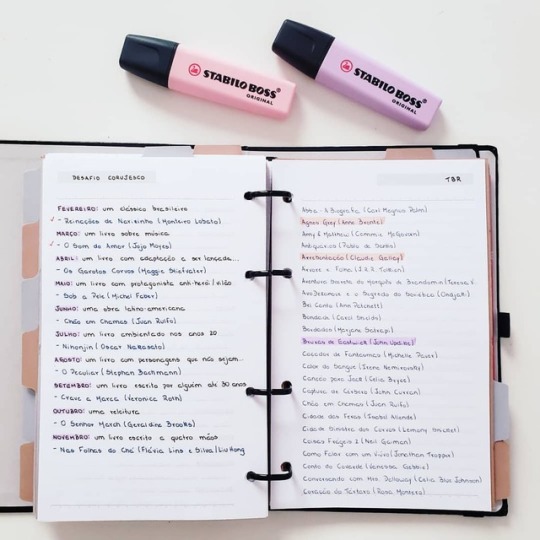 STABILO BOSS
ORIGINAL
STABILO BOSS
ORIGINAL
DESAFIO CORUJESCO
FEVEREIRO: um clássico brasileiro
- Reinações de Narizinho (Monteiro Lobato)
MARÇO: um livro sobre música
- O Som do Amor (Jojo Moyes)
ABRIL: um livro com adaptação a ser lançada...
- Os Garotos Corvos (Maggie Stiefvater)
MAIO: um livro com protagonista anti-herói/vilão
- Sob a Pele (Michel Faber)
JUNHO: uma obra latino-americana
- Chão em Chamas (Juan Rulfo)
JULHO: um livro ambientado nos anos 20
- Ninonjin (Oscar Nakasato)
AGOSTO: um livro com personagens que não sejam...
- O Peculiar (Stephan Bachmann)
SETEMBRO: um livro escrito por alguém até 30 anos
- Crave a Marca (Veronica Roth)
OUTUBRO: uma releitura
- O Senhor March (Geraldine Brooks)
NOVEMBRO: um livro escrito a quatro mãos
- Nas Folhas do Chá (Flávia Lins e Silva/Liu Hong
TBR
Abba - A Biografia (Carl Magnus Palm)
Agnes Grey (Anne Brontë)
Amy & Matthew (Cammie McGovern)
Antiguarias (Pablo de Santis)
Apresentação (Claudie Gallay)
Árvore e Folha (J.R.R. Tolkien)
Aventura Secreta do Mosquito de Brandomin (Teresa
AvóDezanove e o Segredo do Soviético (Ondjaki)
Bel Canto (Ann Patchett)
Bondade (Carol Shields)
Bordados (Marjane Satrapi)
Bruxas de Eastwick (John Updike)
Caçador de Fantasmas (Michelle Paver)
Calor do Sangue (Irène Némirovsky)
Canção para Jack (Celia Bryce)
Captura de Cérbero (John Curran)
Chão em Chamas (Juan Rulfo)
Cidade das Feras (Isabel Allende)
Cidade Sinistra dos Corvos (Lemony Snicket)
Coisas Frágeis 2 (Neil Gaiman)
Como Falar com um Viúvo (Jonathan Tropper)
Conto do Covarde (Vanessa Gebbie)
Conversando com Mrs. Dalloway (Celia Blue Johnson)
Coração do Tártaro (Rosa Montero)